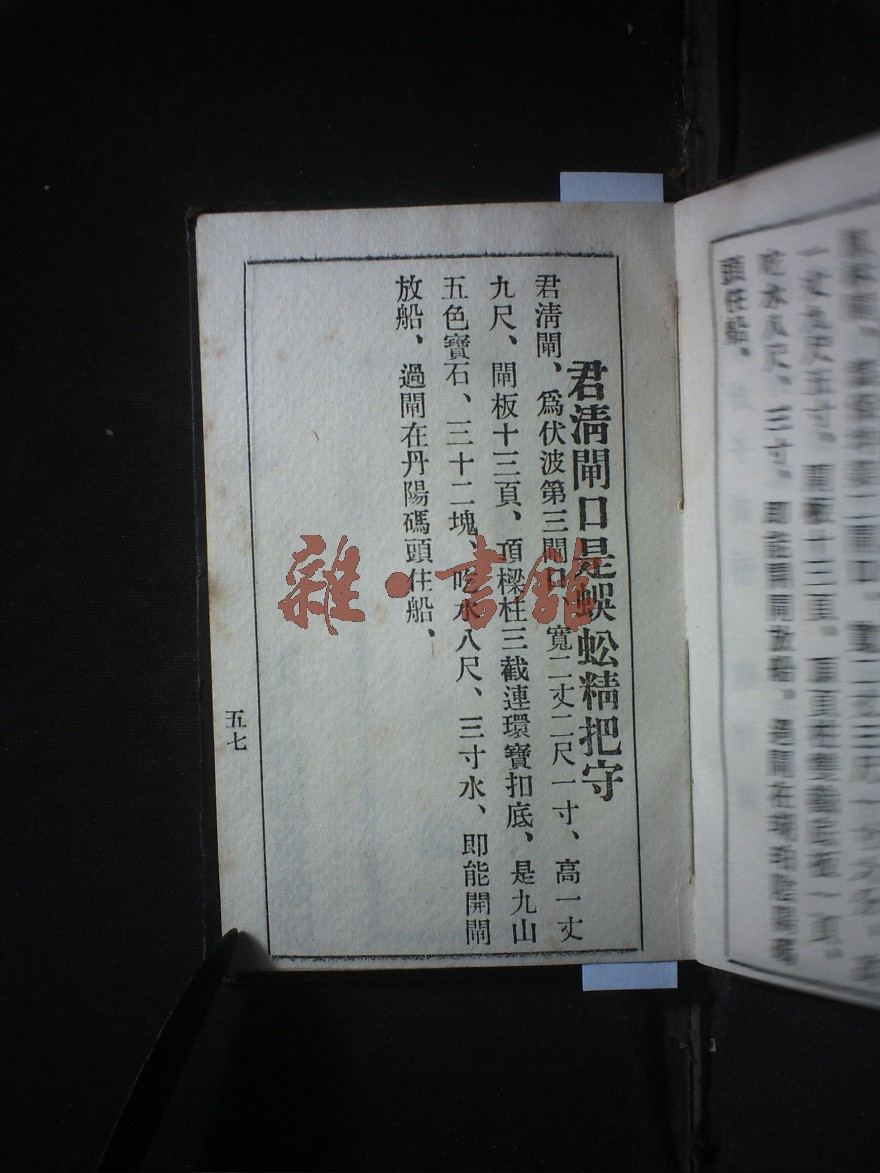 君淸閘口是蜈蚣精把守
君淸閘、爲伏波第三閘口、寬二丈二尺一寸、高一丈
九尺、閘板十三頁、頂樑柱三截連環寶扣底、是九山
五色寶石、三十二塊、吃水八尺、三寸水、即能開閘
放船、過閘在丹陽碼頭住船、
五七
雜·書館
一丈九尺五寸、閘板十三頁、
吃水八尺、三寸、即能開閘放船、過閘在
頭住船、